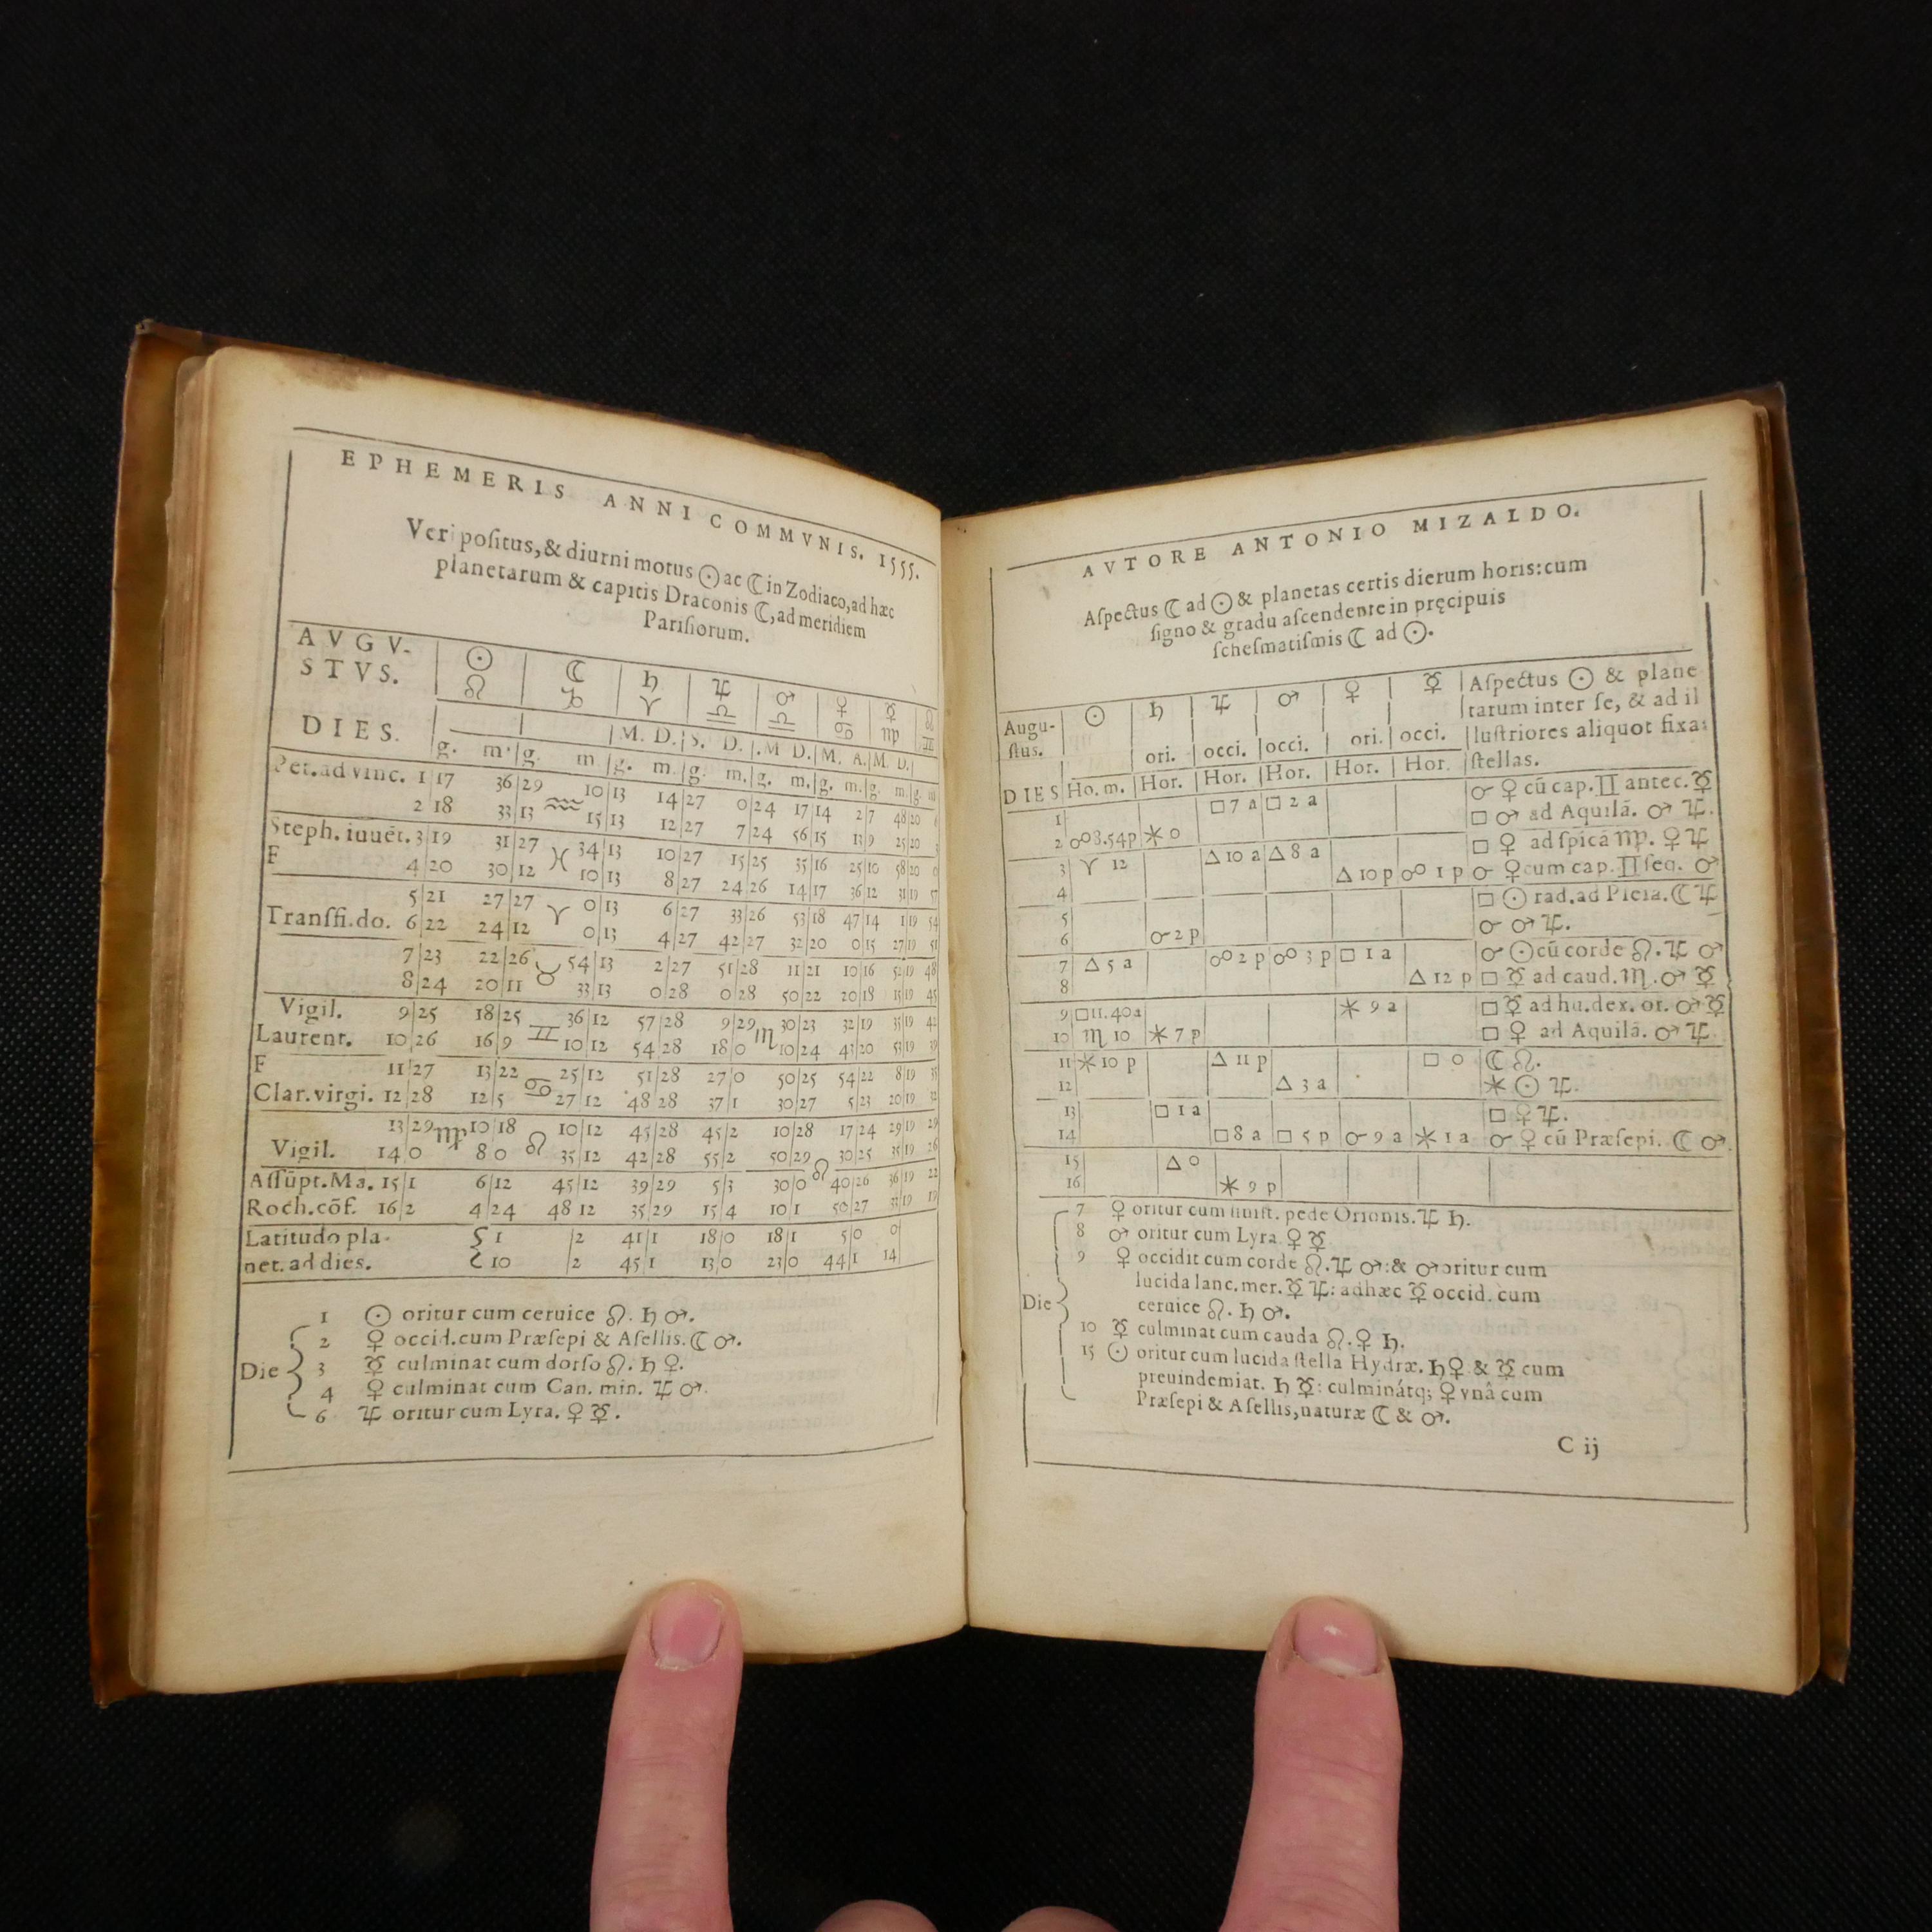 EPHEMERIS ANNI COMMVNIS. 1555.
Veri poſitus, & diurni motus ☉ ac ☾ in Zodiaco, ad hæc
planetarum & capitis Draconis ☾, ad meridiem
Pariſiorum.
AVGV-
STVS.
☉ ☾ ♄ ♃ ♂ ♀ ☿ ☊
♌ ♑ ♈ ♎ ♎ ♋ ♍ ♊
DIES.
M. D. S. D. M D. M. A. M. D.
g. m. g. m. g. m. g. m. g. m. g. m. g. m. g. m
Pet. ad vinc. 1 17 36 29 10 13 14 27 0 24 17 14 2 7 48 20
2 18 33 13 ♒ 15 13 12 27 7 24 56 15 13 9 25 20
Steph. iuuēt. 3 19 31 27 34 13 10 27 15 25 35 16 25 10 58 20
F 4 20 30 12 ♓ 10 13 8 27 24 26 14 17 36 12 31 19 57
5 21 27 27 0 13 6 27 33 26 53 18 47 14 1 19 54
Tranſfi. do. 6 22 24 12 ♈ 0 13 4 27 42 27 32 20 0 15 27 19 51
7 23 22 26 54 13 2 27 51 28 11 21 10 16 52 19 48
8 24 20 11 ♉ 33 13 0 28 0 28 50 22 20 18 15 19 45
Vigil. 9 25 18 25 36 12 57 28 9 29 30 23 32 19 35 19 42
Laurent. 10 26 16 9 ♊ 10 12 54 28 18 0 ♏ 10 24 43 20 53 19 39
F 11 27 13 22 25 12 51 28 27 0 50 25 54 22 8 19 35
Clar. virgi. 12 28 12 5 ♋ 27 12 48 28 37 1 30 27 5 23 20 19 32
13 29 ♍ 10 18 10 12 45 28 45 2 10 28 17 24 29 19 29
Vigil. 14 0 8 0 ♌ 35 12 42 28 55 2 50 29 30 25 35 19 26
Aſſūpt. Ma. 15 1 6 12 45 12 39 29 5 3 30 0 ♌ 40 26 36 19 22
Roch. cōf. 16 2 4 24 48 12 35 29 15 4 10 1 50 27 33 19 19
Latitudo pla- 1 2 41 1 18 0 18 1 5 0 0
net. ad dies. 10 2 45 1 13 0 23 0 44 1 14
1 ☉ oritur cum ceruice ♌. ♄ ♂.
2 ♀ occid. cum Præſepi & Aſellis. ☾ ♂.
Die 3 ☿ culminat cum dorſo ♌. ♄ ♀.
4 ♀ culminat cum Can. min. ♃ ♂.
6 ♃ oritur cum Lyra. ♀ ☿.
AVTORE ANTONIO MIZALDO.
Aſpectus ☾ ad ☉ & planetas certis dierum horis: cum
ſigno & gradu aſcendente in pręcipuis
ſcheſmatiſmis ☾ ad ☉.
Auguſtus. ☉ ♄ ♃ ♂ ♀ ☿ Aſpectus ☉ & plane
tarum inter ſe, & ad il
ori. occi. occi. ori. occi. luſtriores aliquot fixas
DIES Ho. m. Hor. Hor. Hor. Hor. Hor. ſtellas.
1 □ 7 a □ 2 a ☌ ♀ cū cap. ♊ antec. ☿
2 ☍ 8.54 p ⚹ 0 □ ♂ ad Aquilā. ♂ ♃.
3 ♈ 12 △ 10 a △ 8 a □ ♀ ad ſpicā ♍. ♀ ♃
4 △ 10 p ☍ 1 p ☌ ♀ cum cap. ♊ ſeq. ♂
5 □ ☉ rad. ad Pleia. ☾ ♃
6 ☌ 2 p ☌ ♂ ♃.
7 △ 5 a ☍ 2 p ☍ 3 p □ 1 a ☌ ☉ cū corde ♌. ♃ ♂
8 △ 12 p □ ☿ ad caud. ♏. ♂ ☿
9 □ 11.40 a ⚹ 9 a □ ☿ ad hu. dex. or. ♂ ☿
10 ♏ 10 ⚹ 7 p □ ♀ ad Aquilā. ♂ ♃.
11 ⚹ 10 p △ 11 p □ 0 ☾ ☊.
12 △ 3 a ⚹ ☉ ♃.
13 □ 1 a □ ♀ ♃.
14 □ 8 a □ 5 p ☌ 9 a ⚹ 1 a ☌ ♀ cū Præſepi. ☾ ♂.
15 △ 0
16 ⚹ 9 p
7 ♀ oritur cum ſiniſt. pede Orionis. ♃ ♄.
8 ♂ oritur cum Lyra ♀ ☿.
9 ♀ occidit cum corde ♌. ♃ ♂: & ♂ oritur cum
lucida lanc. mer. ☿ ♃: adhæc ☿ occid. cum
Die ceruice ♌. ♄ ♂.
10 ☿ culminat cum cauda ♌. ♀ ♄.
15 ☉ oritur cum lucida ſtella Hydræ. ♄ ♀ & ☿ cum
preuindemiat. ♄ ☿: culminátq; ♀ vnâ cum
Præſepi & Aſellis, naturæ ☾ & ♂.
C ij